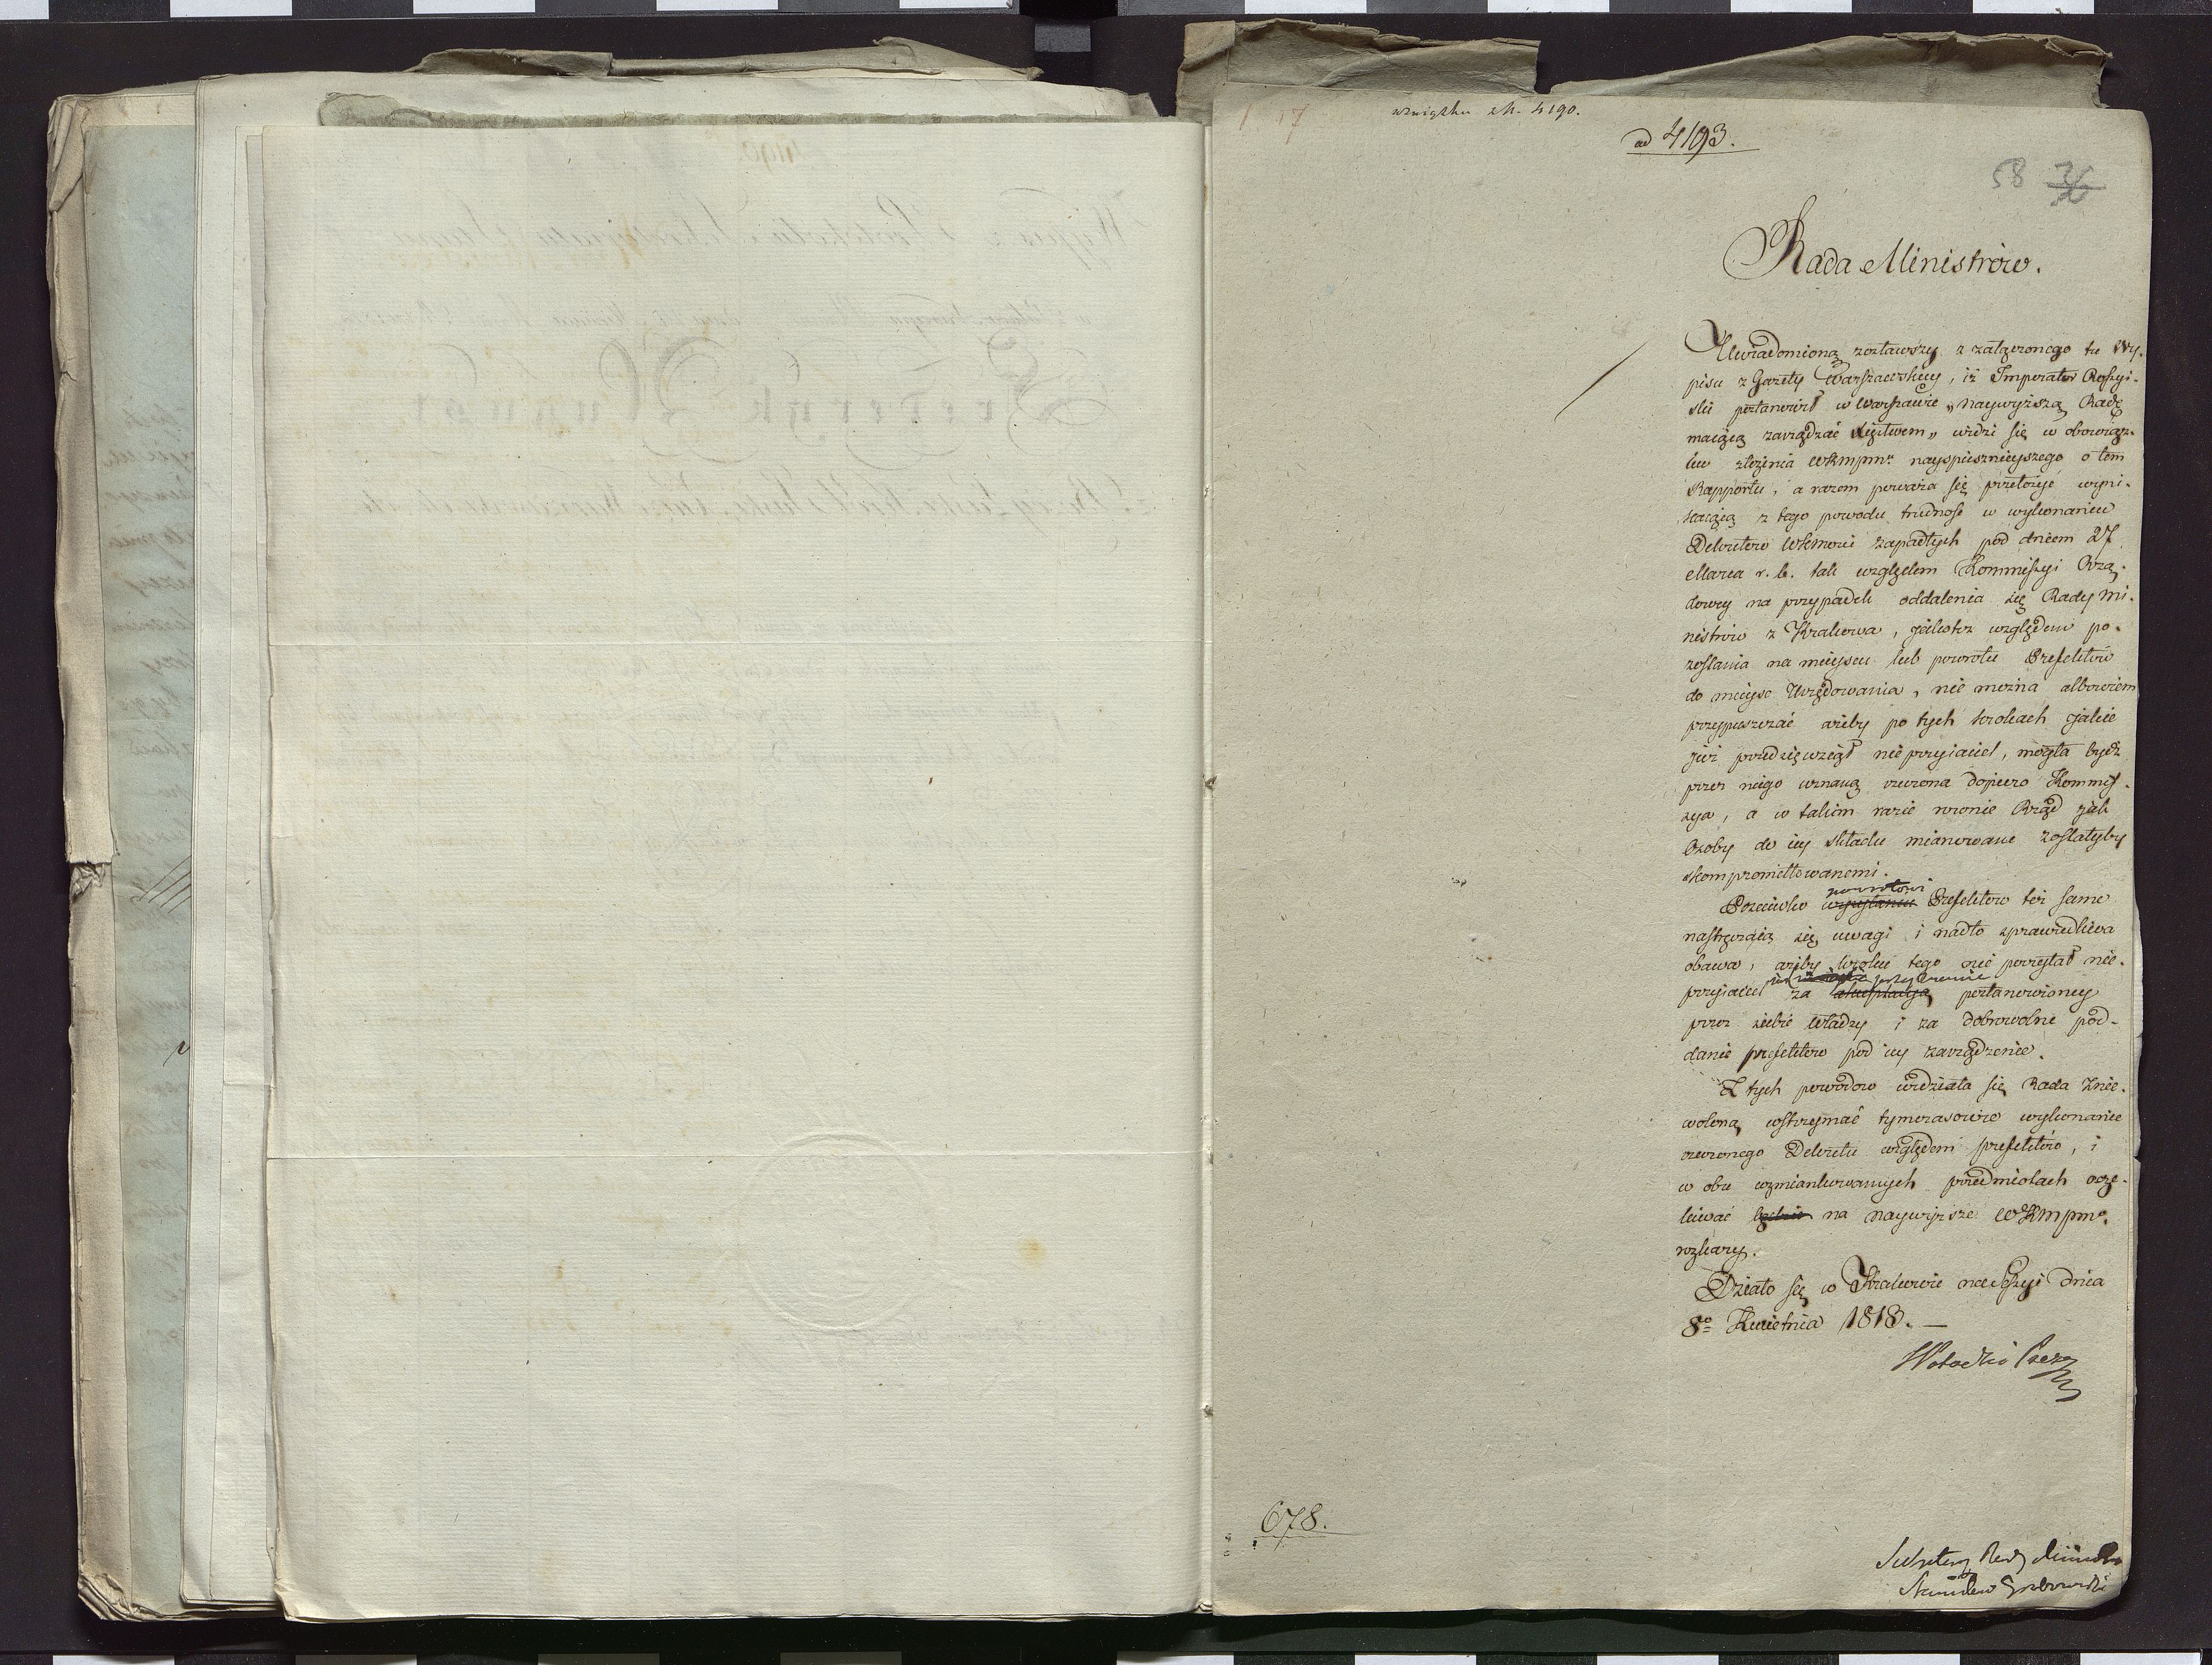 1 17
w związku z N. 4190.
ad 4193.
58 36
Rada Ministrów.
Uwiadomioną zostawszy z załączonego tu Wy-
pisu z Gazety Warszawskiey, iż Imperator Rossyi-
ski postanowił w Warszawie „naywyższą Radę
maiącą zarządzać Xięstwem„ widzi się w obowiąz-
ku złożenia WKMPM. nayspieszniejszego o tem
Rapportu, a razem poważa się przełożyć wyni-
kaiącą z tego powodu trudność w wykonaniu
Dekretów WKMości zapadłych pod dniem 27
Marca r. b. tak względem Kommissyi Rzą-
dowey na przypadek oddalenia się Rady Mi-
nistrów z Krakowa, jakotéż względem po-
zostania na mieyscu lub powrotu Prefektów
do mieysc Urzędowania, nie można albowiem
przypuszczać ażeby po tych krokach jakie
już przedsięwziął nieprzyiaciel, mogła bydź
przez niego uznaną rzeczona dopiero Kommis-
sya, a w takim razie równie Rząd jak
Osoby do iey składu mianowane zostałyby
skompromittowanemi.
powrotowi
Przeciwko wysłaniu Prefektów też same
nastręczaią się uwagi i nadto sprawiedliwa
obawa, ażeby kroku tego nie poczytał nie-
przyiaciel za postanowioney
przez siebie Władzy i za dobrowolne pod-
danie prefektów pod iey zarządzenie.
Z tych powodów widziała się Rada znie-
woloną wstrzymać tymczasowie wykonanie
rzeczonego Dekretu względem prefektów, i
w obu wzmiankowanych przedmiotach ocze-
kiwać będzie na naywyższe WKMPM.
rozkazy.
Działo się w Krakowie na Sessyi dnia
8go Kwietnia 1813. —
678.
Sekretarz Rady Ministrów
Stanisław Grabowski